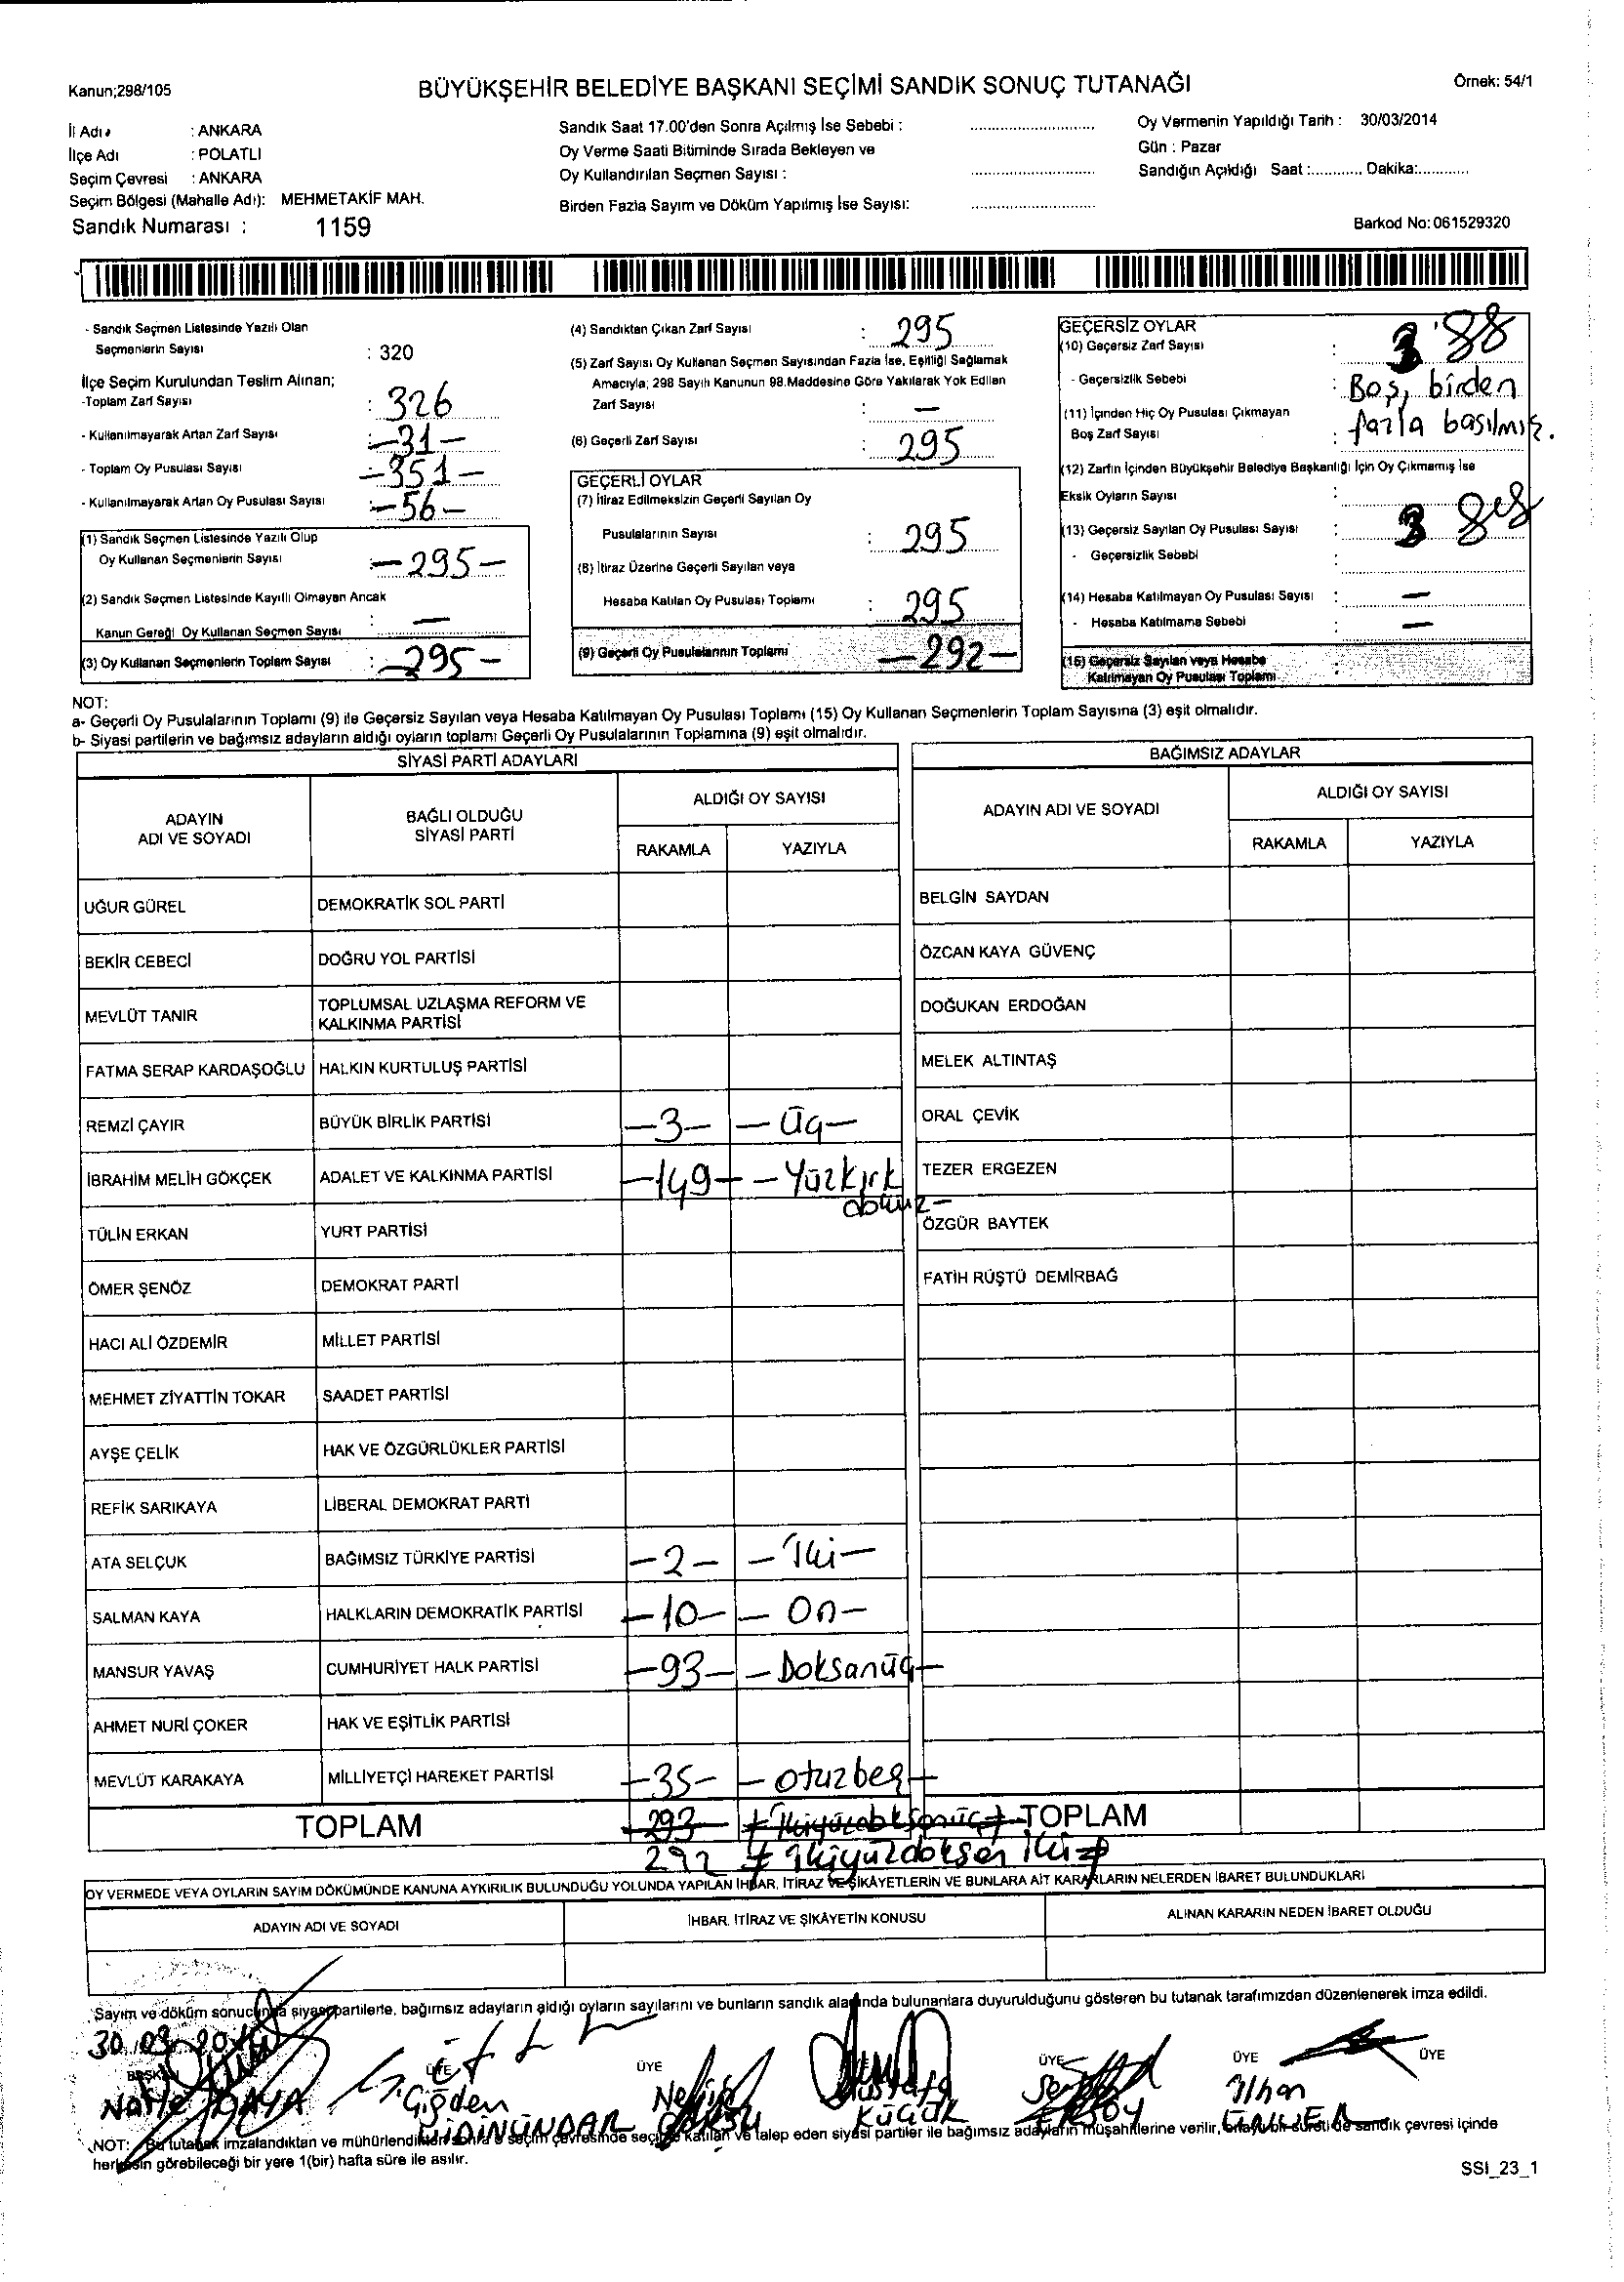 Kanun;298/105
BÜYÜKŞEHİR BELEDİYE BAŞKANI SEÇİMİ SANDIK SONUÇ TUTANAĞI
Örnek: 54/1
İl Adı : ANKARA
İlçe Adı : POLATLI
Seçim Çevresi : ANKARA
Seçim Bölgesi (Mahalle Adı): MEHMETAKİF MAH.
Sandık Numarası : 1159
Sandık Saat 17.00'den Sonra Açılmış İse Sebebi :
Oy Verme Saati Bitiminde Sırada Bekleyen ve
Oy Kullandırılan Seçmen Sayısı :
Birden Fazla Sayım ve Döküm Yapılmış İse Sayısı:
Oy Vermenin Yapıldığı Tarih : 30/03/2014
Gün : Pazar
Sandığın Açıldığı Saat :............ Dakika:............
Barkod No:061529320
- Sandık Seçmen Listesinde Yazılı Olan
Seçmenlerin Sayısı : 320
İlçe Seçim Kurulundan Teslim Alınan;
-Toplam Zarf Sayısı : 326
- Kullanılmayarak Artan Zarf Sayısı : -31-
- Toplam Oy Pusulası Sayısı : -351-
- Kullanılmayarak Artan Oy Pusulası Sayısı : -56-
(1) Sandık Seçmen Listesinde Yazılı Olup
Oy Kullanan Seçmenlerin Sayısı : -295-
(2) Sandık Seçmen Listesinde Kayıtlı Olmayan Ancak
Kanun Gereği Oy Kullanan Seçmen Sayısı : —
(3) Oy Kullanan Seçmenlerin Toplam Sayısı : -295-
(4) Sandıktan Çıkan Zarf Sayısı : 295
(5) Zarf Sayısı Oy Kullanan Seçmen Sayısından Fazla İse, Eşitliği Sağlamak
Amacıyla; 298 Sayılı Kanunun 98.Maddesine Göre Yakılarak Yok Edilen
Zarf Sayısı : —
(6) Geçerli Zarf Sayısı : 295
GEÇERLİ OYLAR
(7) İtiraz Edilmeksizin Geçerli Sayılan Oy
Pusulalarının Sayısı : 295
(8) İtiraz Üzerine Geçerli Sayılan veya
Hesaba Katılan Oy Pusulası Toplamı : 295
(9) Geçerli Oy Pusulalarının Toplamı -292-
GEÇERSİZ OYLAR
(10) Geçersiz Zarf Sayısı : 3
- Geçersizlik Sebebi : Boş, birden
(11) İçinden Hiç Oy Pusulası Çıkmayan
Boş Zarf Sayısı : fazla basılmış.
(12) Zarfın İçinden Büyükşehir Belediye Başkanlığı İçin Oy Çıkmamış İse
Eksik Oyların Sayısı :
(13) Geçersiz Sayılan Oy Pusulası Sayısı : 3
- Geçersizlik Sebebi :
(14) Hesaba Katılmayan Oy Pusulası Sayısı : —
- Hesaba Katılmama Sebebi : —
(15) Geçersiz Sayılan veya Hesaba
Katılmayan Oy Pusulası Toplamı :
NOT:
a- Geçerli Oy Pusulalarının Toplamı (9) ile Geçersiz Sayılan veya Hesaba Katılmayan Oy Pusulası Toplamı (15) Oy Kullanan Seçmenlerin Toplam Sayısına (3) eşit olmalıdır.
b- Siyasi partilerin ve bağımsız adayların aldığı oyların toplamı Geçerli Oy Pusulalarının Toplamına (9) eşit olmalıdır.
SİYASİ PARTİ ADAYLARI
ADAYIN ADI VE SOYADI
BAĞLI OLDUĞU SİYASİ PARTİ
ALDIĞI OY SAYISI
RAKAMLA YAZIYLA
UĞUR GÜREL DEMOKRATİK SOL PARTİ
BEKİR CEBECİ DOĞRU YOL PARTİSİ
MEVLÜT TANIR TOPLUMSAL UZLAŞMA REFORM VE KALKINMA PARTİSİ
FATMA SERAP KARDAŞOĞLU HALKIN KURTULUŞ PARTİSİ
REMZİ ÇAYIR BÜYÜK BİRLİK PARTİSİ -3- -Üç-
İBRAHİM MELİH GÖKÇEK ADALET VE KALKINMA PARTİSİ -149- -Yüzkırk dokuz-
TÜLİN ERKAN YURT PARTİSİ
ÖMER ŞENÖZ DEMOKRAT PARTİ
HACI ALİ ÖZDEMİR MİLLET PARTİSİ
MEHMET ZİYATTİN TOKAR SAADET PARTİSİ
AYŞE ÇELİK HAK VE ÖZGÜRLÜKLER PARTİSİ
REFİK SARIKAYA LİBERAL DEMOKRAT PARTİ
ATA SELÇUK BAĞIMSIZ TÜRKİYE PARTİSİ -2- -İki-
SALMAN KAYA HALKLARIN DEMOKRATİK PARTİSİ -10- -On-
MANSUR YAVAŞ CUMHURİYET HALK PARTİSİ -93- -Doksanüç-
AHMET NURİ ÇOKER HAK VE EŞİTLİK PARTİSİ
MEVLÜT KARAKAYA MİLLİYETÇİ HAREKET PARTİSİ -35- -otuzbeş-
TOPLAM -293- # İkiyüzdoksanüç #
292 # ikiyüzdoksan iki #
BAĞIMSIZ ADAYLAR
ADAYIN ADI VE SOYADI
ALDIĞI OY SAYISI
RAKAMLA YAZIYLA
BELGİN SAYDAN
ÖZCAN KAYA GÜVENÇ
DOĞUKAN ERDOĞAN
MELEK ALTINTAŞ
ORAL ÇEVİK
TEZER ERGEZEN
ÖZGÜR BAYTEK
FATİH RÜŞTÜ DEMİRBAĞ
TOPLAM
OY VERMEDE VEYA OYLARIN SAYIM DÖKÜMÜNDE KANUNA AYKIRILIK BULUNDUĞU YOLUNDA YAPILAN İHBAR, İTİRAZ VE ŞİKAYETLERİN VE BUNLARA AİT KARARLARIN NELERDEN İBARET BULUNDUKLARI
ADAYIN ADI VE SOYADI
İHBAR, İTİRAZ VE ŞİKAYETİN KONUSU
ALINAN KARARIN NEDEN İBARET OLDUĞU
Sayım ve döküm sonucunda siyasi partilerle, bağımsız adayların aldığı oyların sayılarını ve bunların sandık alanında bulunanlara duyurulduğunu gösteren bu tutanak tarafımızdan düzenlenerek imza edildi.
30.03.2014
BAŞKAN ÜYE ÜYE ÜYE ÜYE ÜYE
KAYA Çiğdem Mustafa KÜÇÜK ERSOY İlhan
NOT: Bu tutanak imzalandıktan ve mühürlendikten sonra o seçim çevresinde seçime katılan ve talep eden siyasi partiler ile bağımsız adayların müşahitlerine verilir, onaylı bir sureti de sandık çevresi içinde
herkesin görebileceği bir yere 1(bir) hafta süre ile asılır.
SSI_23_1